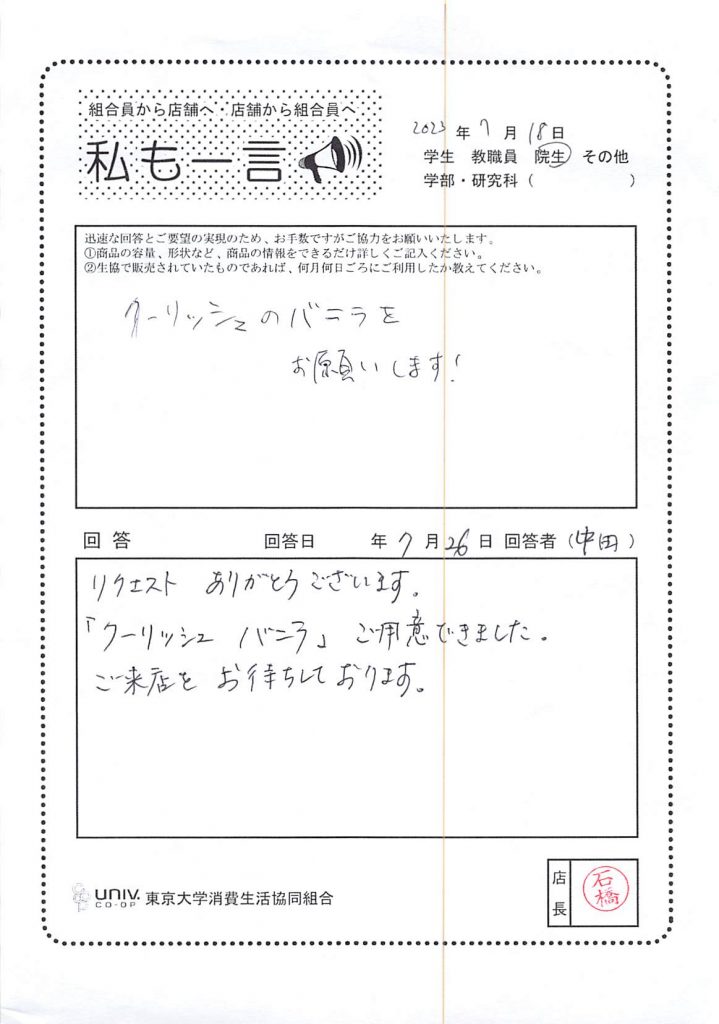 組合員から店舗へ・店舗から組合員へ
私も一言
2023年7月18日
学生 教職員 院生 その他
学部・研究科( )
迅速な回答とご要望の実現のため、お手数ですがご協力をお願いいたします。
①商品の容量、形状など、商品の情報をできるだけ詳しくご記入ください。
②生協で販売されていたものであれば、何月何日ごろにご利用したか教えてください。
クーリッシュのバニラを
お願いします!
回答 回答日 年7月26日 回答者(中田)
リクエスト ありがとうございます。
「クーリッシュ バニラ」ご用意できました。
ご来店を お待ちしております。
UNIV. CO-OP 東京大学消費生活協同組合
店長 石橋